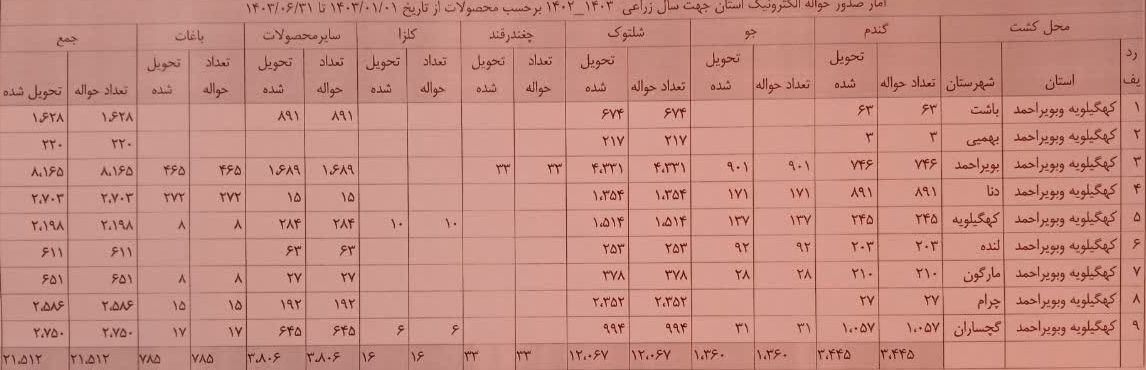 آمار صدور حواله الکترونیک استان جهت سال زراعی ۱۴۰۳_۱۴۰۲ برحسب محصولات از تاریخ ۱۴۰۳/۰۱/۰۱ تا ۱۴۰۳/۰۶/۳۱
ردیف محل کشت گندم جو شلتوک چغندرقند کلزا سایرمحصولات باغات جمع
استان شهرستان تعداد حواله تحویل شده تعداد حواله تحویل شده تعداد حواله تحویل شده تعداد حواله تحویل شده تعداد حواله تحویل شده تعداد حواله تحویل شده تعداد حواله تحویل شده تعداد حواله تحویل شده
۱ کهگیلویه وبویراحمد باشت ۶۳ ۶۳ ۶۷۴ ۶۷۴ ۸۹۱ ۸۹۱ ۱،۶۲۸ ۱،۶۲۸
۲ کهگیلویه وبویراحمد بهمیی ۳ ۳ ۲۱۷ ۲۱۷ ۲۲۰ ۲۲۰
۳ کهگیلویه وبویراحمد بویراحمد ۷۴۶ ۷۴۶ ۹۰۱ ۹۰۱ ۴،۳۳۱ ۴،۳۳۱ ۳۳ ۳۳ ۱،۶۸۹ ۱،۶۸۹ ۴۶۵ ۴۶۵ ۸،۱۶۵ ۸،۱۶۵
۴ کهگیلویه وبویراحمد دنا ۸۹۱ ۸۹۱ ۱۷۱ ۱۷۱ ۱،۳۵۴ ۱،۳۵۴ ۱۵ ۱۵ ۲۷۲ ۲۷۲ ۲،۷۰۳ ۲،۷۰۳
۵ کهگیلویه وبویراحمد کهگیلویه ۲۴۵ ۲۴۵ ۱۳۷ ۱۳۷ ۱،۵۱۴ ۱،۵۱۴ ۱۰ ۱۰ ۲۸۴ ۲۸۴ ۸ ۸ ۲،۱۹۸ ۲،۱۹۸
۶ کهگیلویه وبویراحمد لنده ۲۰۳ ۲۰۳ ۹۲ ۹۲ ۲۵۳ ۲۵۳ ۶۳ ۶۳ ۶۱۱ ۶۱۱
۷ کهگیلویه وبویراحمد مارگون ۲۱۰ ۲۱۰ ۲۸ ۲۸ ۳۷۸ ۳۷۸ ۲۷ ۲۷ ۸ ۸ ۶۵۱ ۶۵۱
۸ کهگیلویه وبویراحمد چرام ۲۷ ۲۷ ۲،۳۵۲ ۲،۳۵۲ ۱۹۲ ۱۹۲ ۱۵ ۱۵ ۲،۵۸۶ ۲،۵۸۶
۹ کهگیلویه وبویراحمد گچساران ۱،۰۵۷ ۱،۰۵۷ ۳۱ ۳۱ ۹۹۴ ۹۹۴ ۶ ۶ ۶۴۵ ۶۴۵ ۱۷ ۱۷ ۲،۷۵۰ ۲،۷۵۰
۳،۴۴۵ ۳،۴۴۵ ۱،۳۶۰ ۱،۳۶۰ ۱۲،۰۶۷ ۱۲،۰۶۷ ۳۳ ۳۳ ۱۶ ۱۶ ۳،۸۰۶ ۳،۸۰۶ ۷۸۵ ۷۸۵ ۲۱،۵۱۲ ۲۱،۵۱۲